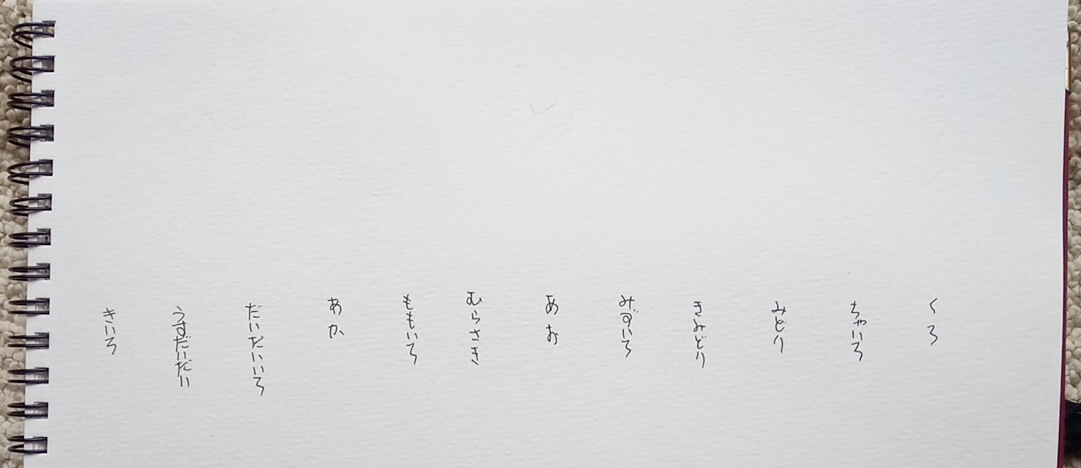 くろ
ちゃいろ
みどり
きみどり
みずいろ
あお
むらさき
ももいろ
あか
だいだいいろ
うすだいだい
きいろ